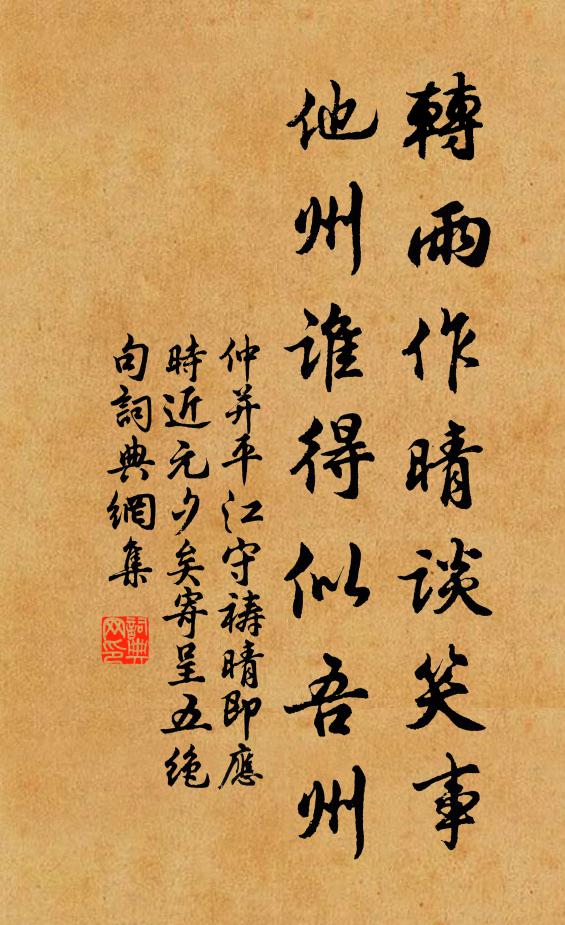 轉雨作晴談笑事
他州誰得似吾州
仲并平江守禱晴即應
時近元夕矣寄呈五絶
句詞典網集
詞典
网印